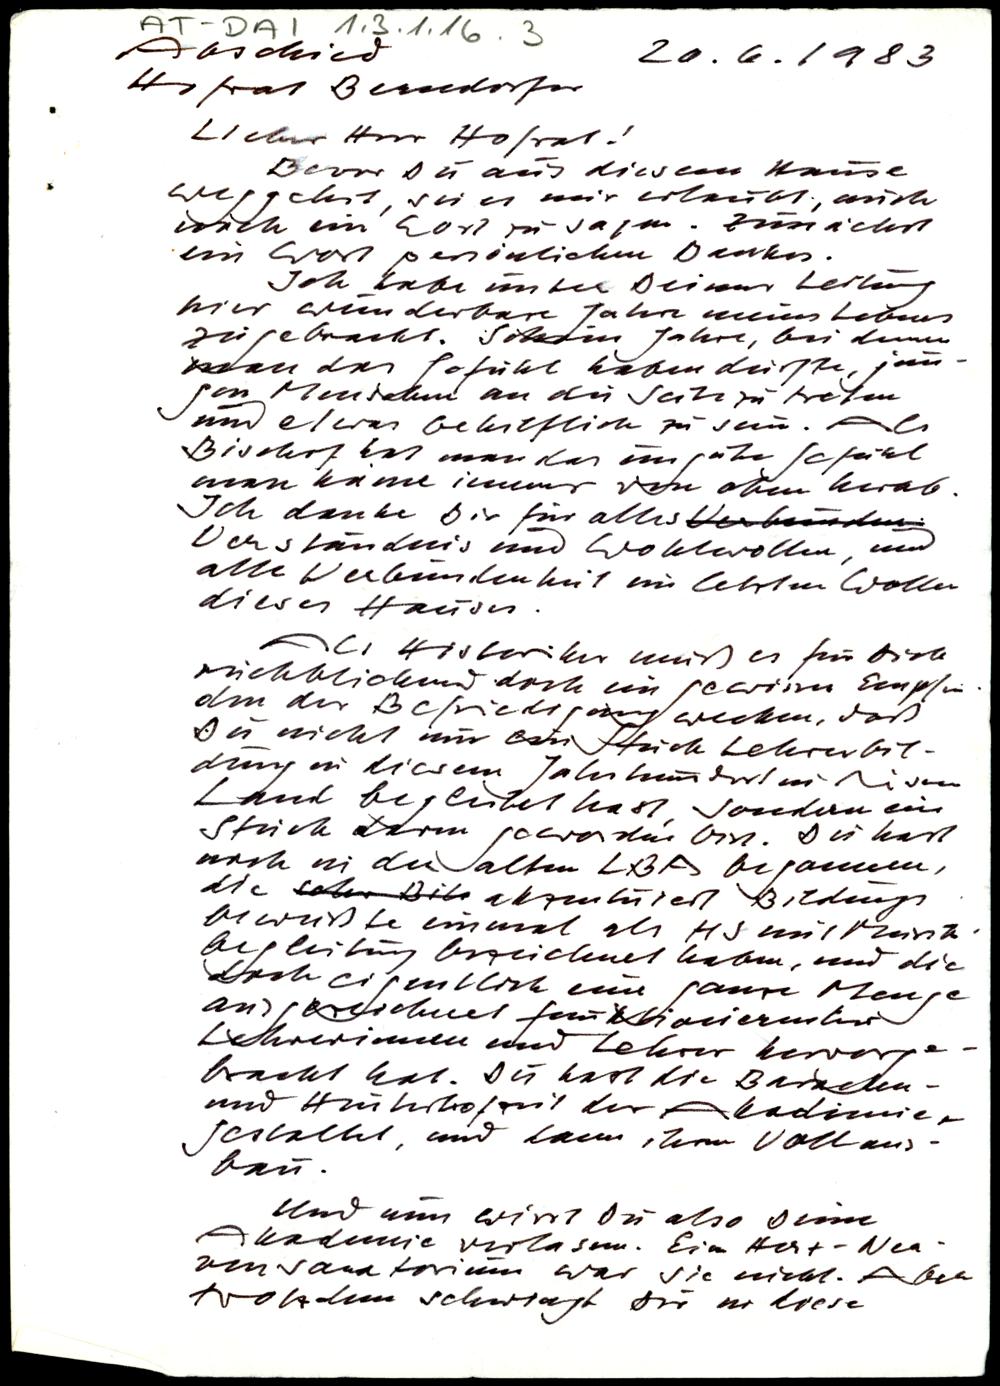 AT-DAI 1.3.1.16.3
Abschied 20.6.1983
Hofrat Berndorfer
Lieber Herr Hofrat!
Bevor Du aus diesem Hause
weggehst, sei es mir erlaubt, auch
noch ein Wort zu sagen. Zunächst
ein Wort persönlichen Dankes.
Ich habe unter Deiner Leitung
hier wunderbare Jahre meines Lebens
zugebracht. Schöne Jahre, bei denen
man das Gefühl haben durfte, jun-
gen Menschen an die Seite zu treten
und etwas behilflich zu sein. Als
Bischof hat man das ungute Gefühl
man käme immer von oben herab.
Ich danke Dir für alles Verbunden
Verständnis und Wohlwollen, und
alle Verbundenheit im letzten Wollen
dieses Hauses.
Als Historiker muß es für Dich
rückblickend doch ein gewisses Empfin-
den der Befriedigung wecken, daß
Du nicht nur ein Stück Lehrerbil-
dung in diesem Jahrhundert in diesem
Land begleitet hast, sondern ein
Stück davon geworden bist. Du hast
noch in der alten LBA begonnen,
die akzentuiert Bildungs
bewußte einmal als HS mit Musik-
begleitung bezeichnet haben, und die
doch eigentlich eine ganze Menge
ausgezeichnet funktionierender
Lehrerinnen und Lehrer hervorge-
bracht hat. Du hast die Baracken-
und Hinterhofzeit der Akademie
gestaltet, und dann ihren Vollaus-
bau.
Und nun wirst Du also Deine
Akademie verlassen. Ein Herz-Ner-
vensanatorium war sie nicht. Aber
trotzdem schwingt Dir in diese